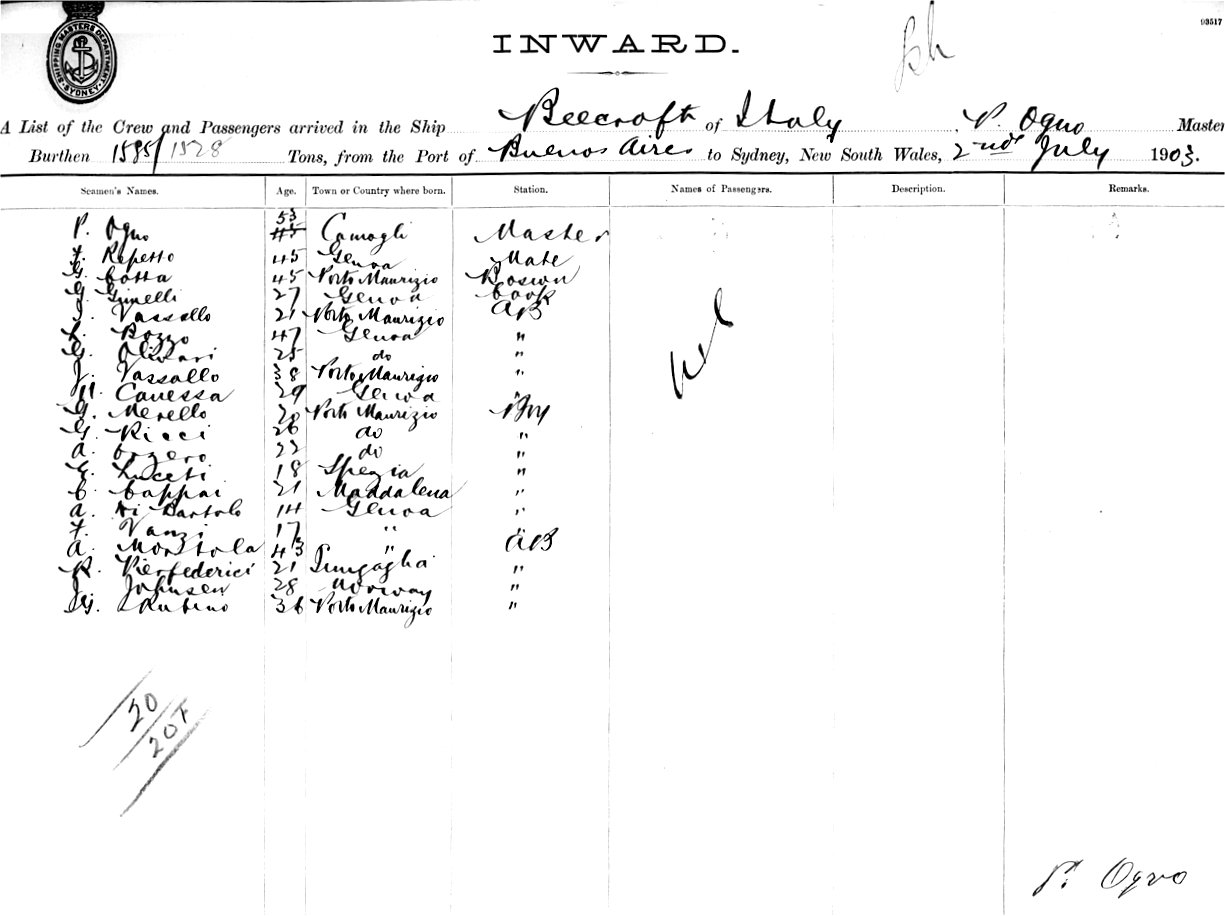 SHIPPING MASTERS DEPARTMENT. SYDNEY.
93517
INWARD.
A List of the Crew and Passengers arrived in the Ship Beecroft of Italy, P. Ogno Master
Burthen 1585/1528 Tons, from the Port of Buenos Aires to Sydney, New South Wales, 2nd July 1903.
Seamen's Names. Age. Town or Country where born. Station. Names of Passengers. Description. Remarks.
P. Ogno 53 45 Camogli Master
F. Repetto 45 Genoa Mate
G. Cotta 45 Porto Maurizio Boswn
G. Ginelli 27 Genoa Cook
J. Vassallo 21 Porto Maurizio AB
L. Bozzo 47 Genoa "
G. Olivari 25 do "
J. Vassallo 38 Porto Maurizio "
N. Canessa 29 Genoa "
G. Merello 20 Porto Maurizio Boy
G. Ricci 26 do "
A. Orzero 22 do "
E. Luceti 18 Spezia "
C. Cappai 21 Maddalena "
A. Di Bartolo 14 Genoa "
F. Vanzi 17 " "
A. 43 " AB
R. Pierfederici 21 "
J. Johnsen 28 Norway "
G. Rubino 36 Porto Maurizio "
Nil
20
20F
P. Ogno